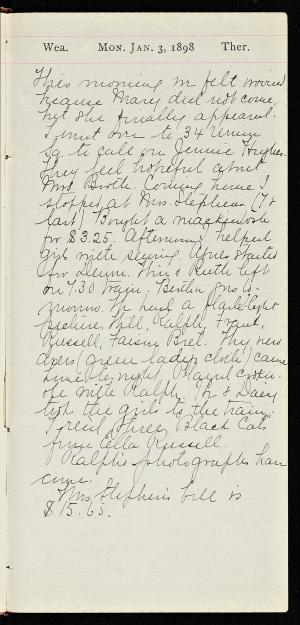 Wea. MON. JAN. 3, 1898 Ther.
This morning we felt worried
because Mary did not come,
but she finally appeared.
I went over to 34 Union
Sq. to call on Jennie Hughes.
They feel hopeful about
Mrs. Booth. Coming home I
stopped at Mrs. Stephens (7 &
last) Bought a mackintosh
for $3.25. Afternoon helped
girls with sewing. Agnes started
for Denn. & Ruth left
on 7.30 train. Bertha goes to-
morrow. We had a flash light
picture, Will, Ralph, Frank,
Russell, Bret. My new
dress (green ladys cloth) came
home to-night. Played
with Ralph. & Daey
took the girls to the train.
I read three Black Cats
from Ella Russell.
Ralph's photographs have
come.
Mrs Stephens bill is
$15.65.